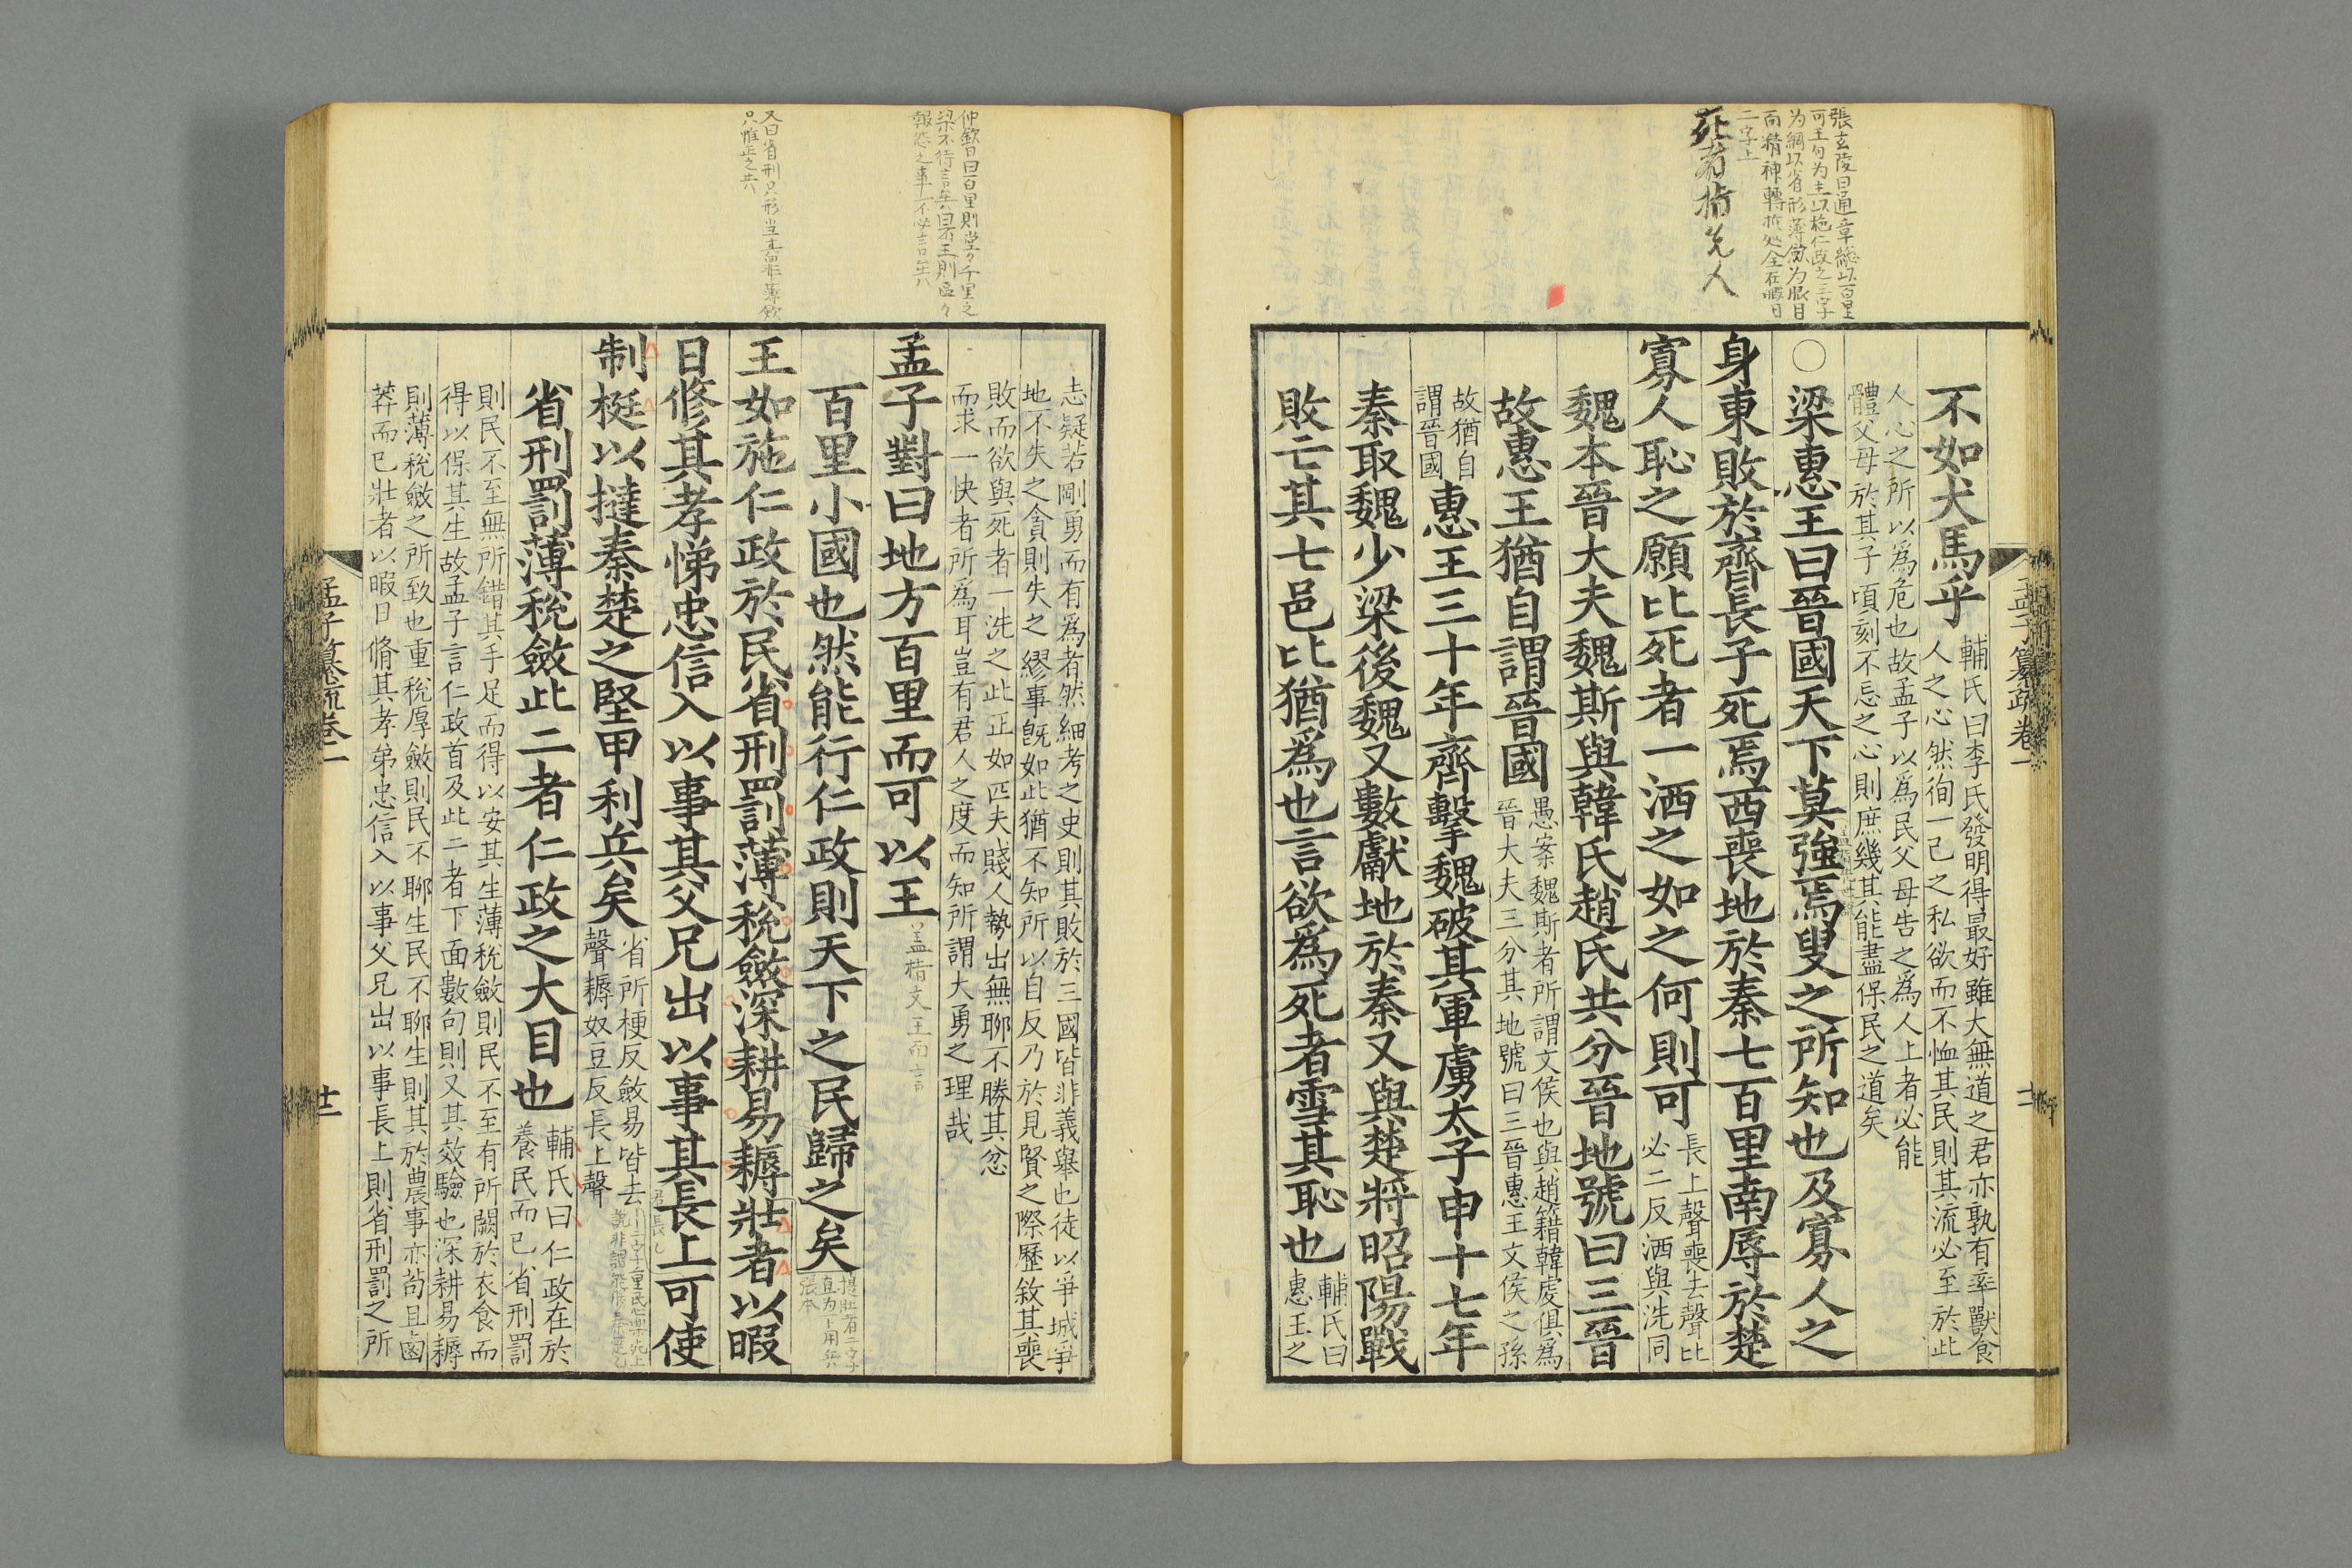 張玄陵曰通章總以百里
可王句为主以施仁政之三字
为綱以省刑薄歛为眼目
而精神轉換処全在暇日
二字上
死者指先人
孟子纂疏卷一
不如犬馬乎
輔氏曰李氏發明得最好雖大無道之君亦孰有率獸食
人之心然徇一己之私欲而不恤其民則其流必至於此
人心之所以為危也故孟子以為民父母告之為人上者必能
體父母於其子頃刻不忘之心則庶幾其能盡保民之道矣
〇梁惠王曰晉國天下莫強焉叟之所知也及寡人之
身東敗於齊長子死焉西喪地於秦七百里南辱於楚
寡人恥之願比死者一洒之如之何則可
長上聲喪去聲比
必二反洒與洗同
魏本晉大夫魏斯與韓氏趙氏共分晉地號曰三晉
故惠王猶自謂晉國
愚案魏斯者所謂文侯也與趙籍韓虔俱為
晉大夫三分其地號曰三晉惠王文侯之孫
故猶自
謂晉國
惠王三十年齊擊魏破其軍虜太子申十七年
秦取魏少梁後魏又數獻地於秦又與楚將昭陽戰
敗亡其七邑比猶為也言欲為死者雪其恥也
輔氏曰
惠王之
仲欽曰曰百里則堂々千里之
梁不待言矣曰王則區々
報怨之事不必言矣
又曰省刑只形当真非薄歛
只惟正之共
志疑若剛勇而有為者然細考之史則其敗於三國皆非義舉也徒以爭城爭
地不失之貪則失之繆事旣如此猶不知所以自反乃於見賢之際歷敘其喪
敗而欲與死者一洗之此正如匹夫賤人勢出無聊不勝其忿
而求一快者所為耳豈有君人之度而知所謂大勇之理哉
孟子對曰地方百里而可以王
盖指文王而言
百里小國也然能行仁政則天下之民歸之矣
提壯者二字
直为下用兵
張本
王如施仁政於民省刑罰薄稅斂深耕易耨壯者以暇
日修其孝悌忠信入以事其父兄出以事其長上可使
制梃以撻秦楚之堅甲利兵矣
省所梗反斂易皆去
聲耨奴豆反長上聲
省刑罰薄稅斂此二者仁政之大目也
輔氏曰仁政在於
養民而已省刑罰
則民不至無所錯其手足而得以安其生薄稅斂則民不至有所闕於衣食而
得以保其生故孟子言仁政首及此二者下面數句則又其效驗也深耕易耨
則薄稅斂之所致也重稅厚斂則民不聊生民不聊生則其於農事亦苟且鹵
莽而已壯者以暇日脩其孝弟忠信入以事父兄出以事長上則省刑罰之所
孟子纂疏卷一
十二